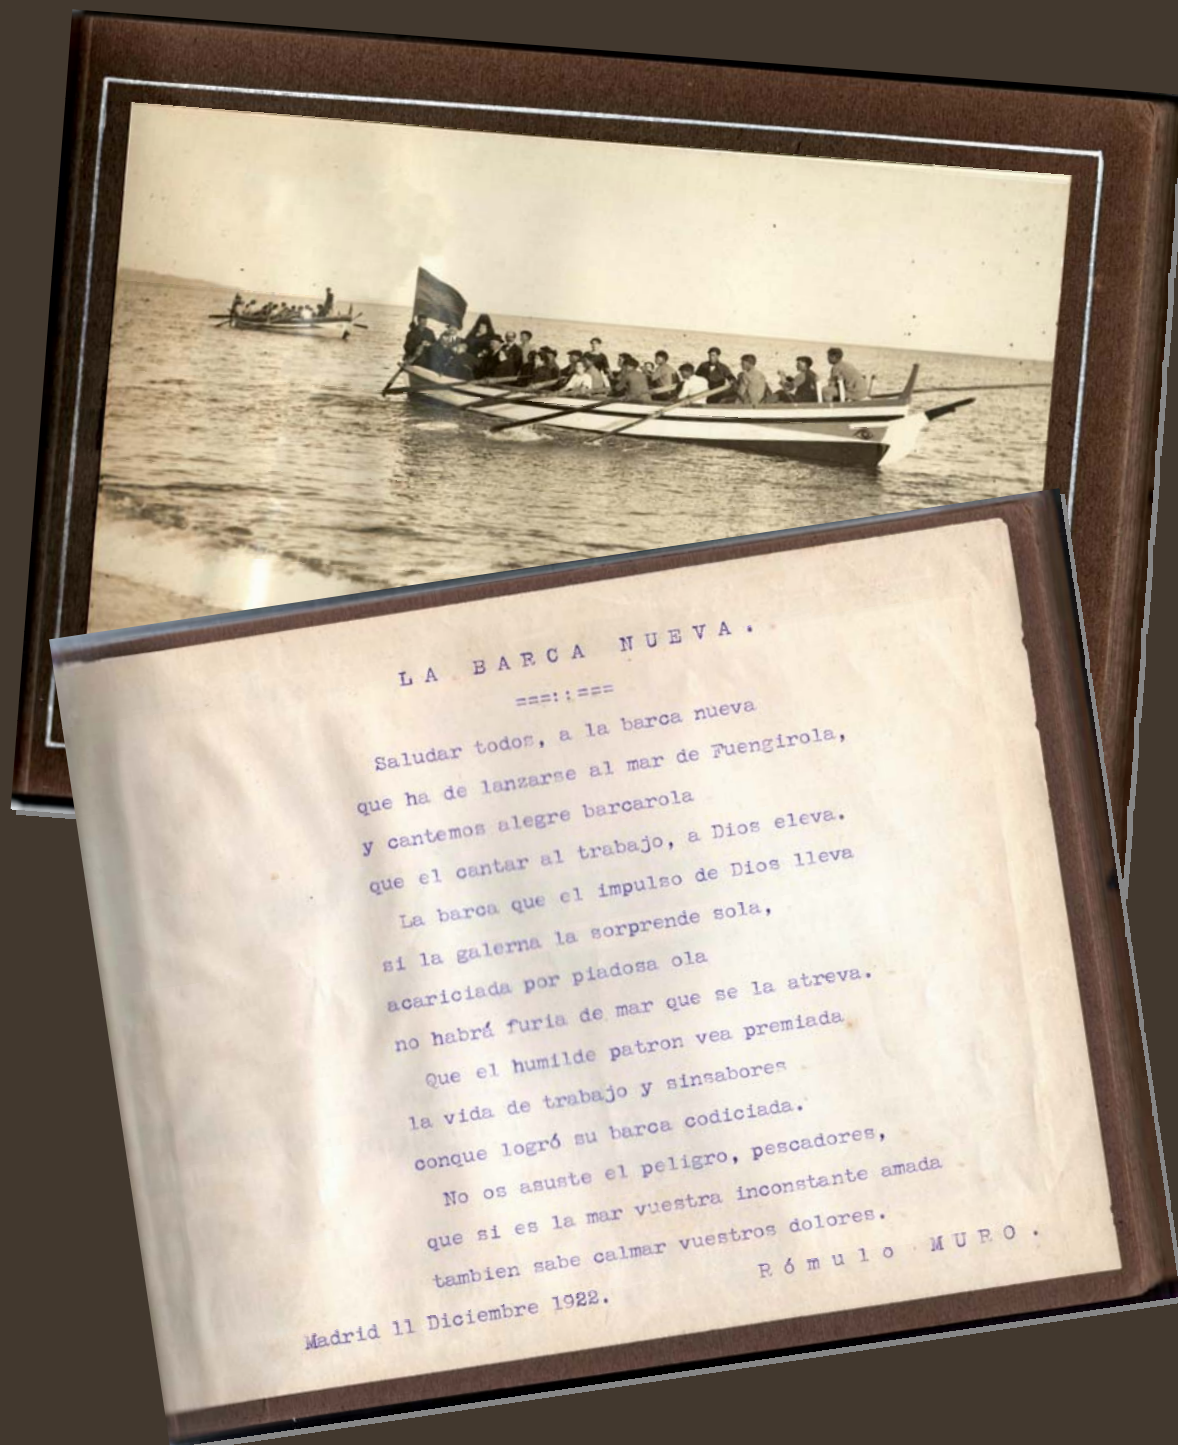 LA BARCA NUEVA.
===::===
Saludar todos, a la barca nueva
que ha de lanzarse al mar de Fuengirola,
y cantemos alegre barcarola
que el cantar al trabajo, a Dios eleva.
La barca que el impulso de Dios lleva
si la galerna la sorprende sola,
acariciada por piadosa ola
no habrá furia de mar que se la atreva.
Que el humilde patron vea premiada
la vida de trabajo y sinsabores
conque logró su barca codiciada.
No os asuste el peligro, pescadores,
que si es la mar vuestra inconstante amada
tambien sabe calmar vuestros dolores.
Rómulo MURO.
Madrid 11 Diciembre 1922.